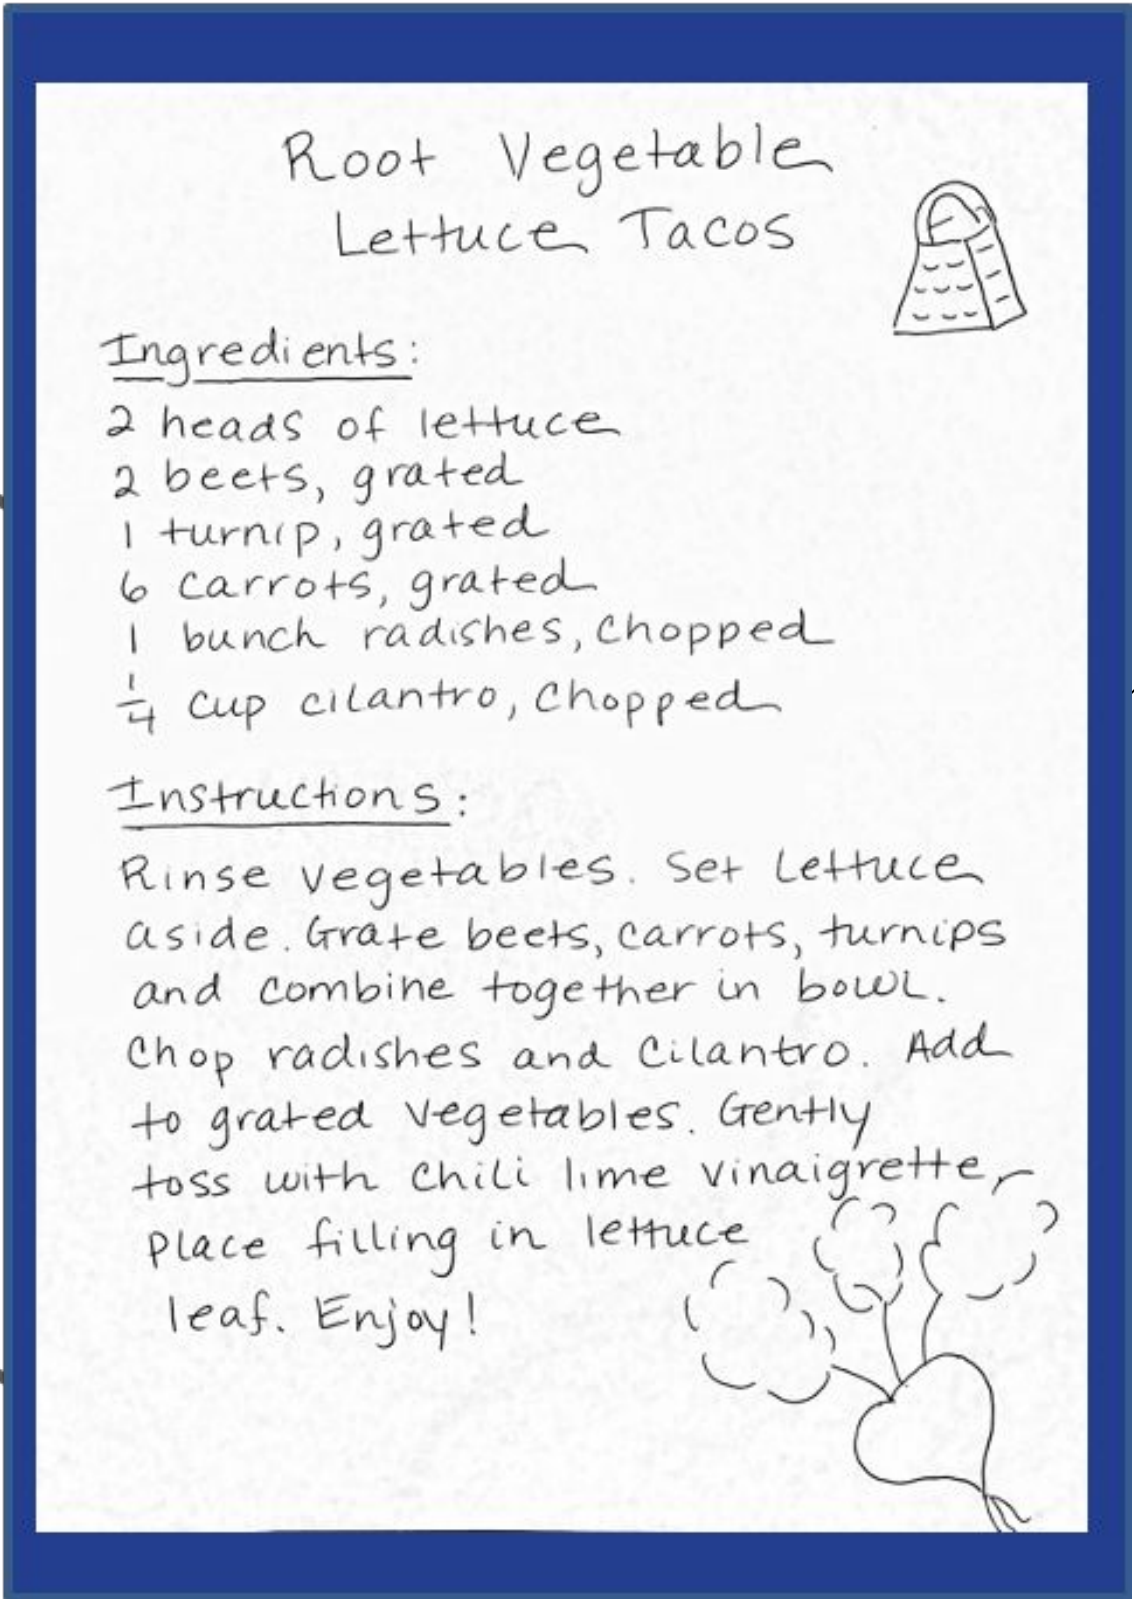 Root Vegetable
Lettuce Tacos
Ingredients:
2 heads of lettuce
2 beets, grated
1 turnip, grated
6 carrots, grated
1 bunch radishes, chopped
1/4 cup cilantro, chopped
Instructions:
Rinse vegetables. Set lettuce
aside. Grate beets, carrots, turnips
and combine together in bowl.
Chop radishes and cilantro. Add
to grated vegetables. Gently
toss with chili lime vinaigrette,
place filling in lettuce
leaf. Enjoy!